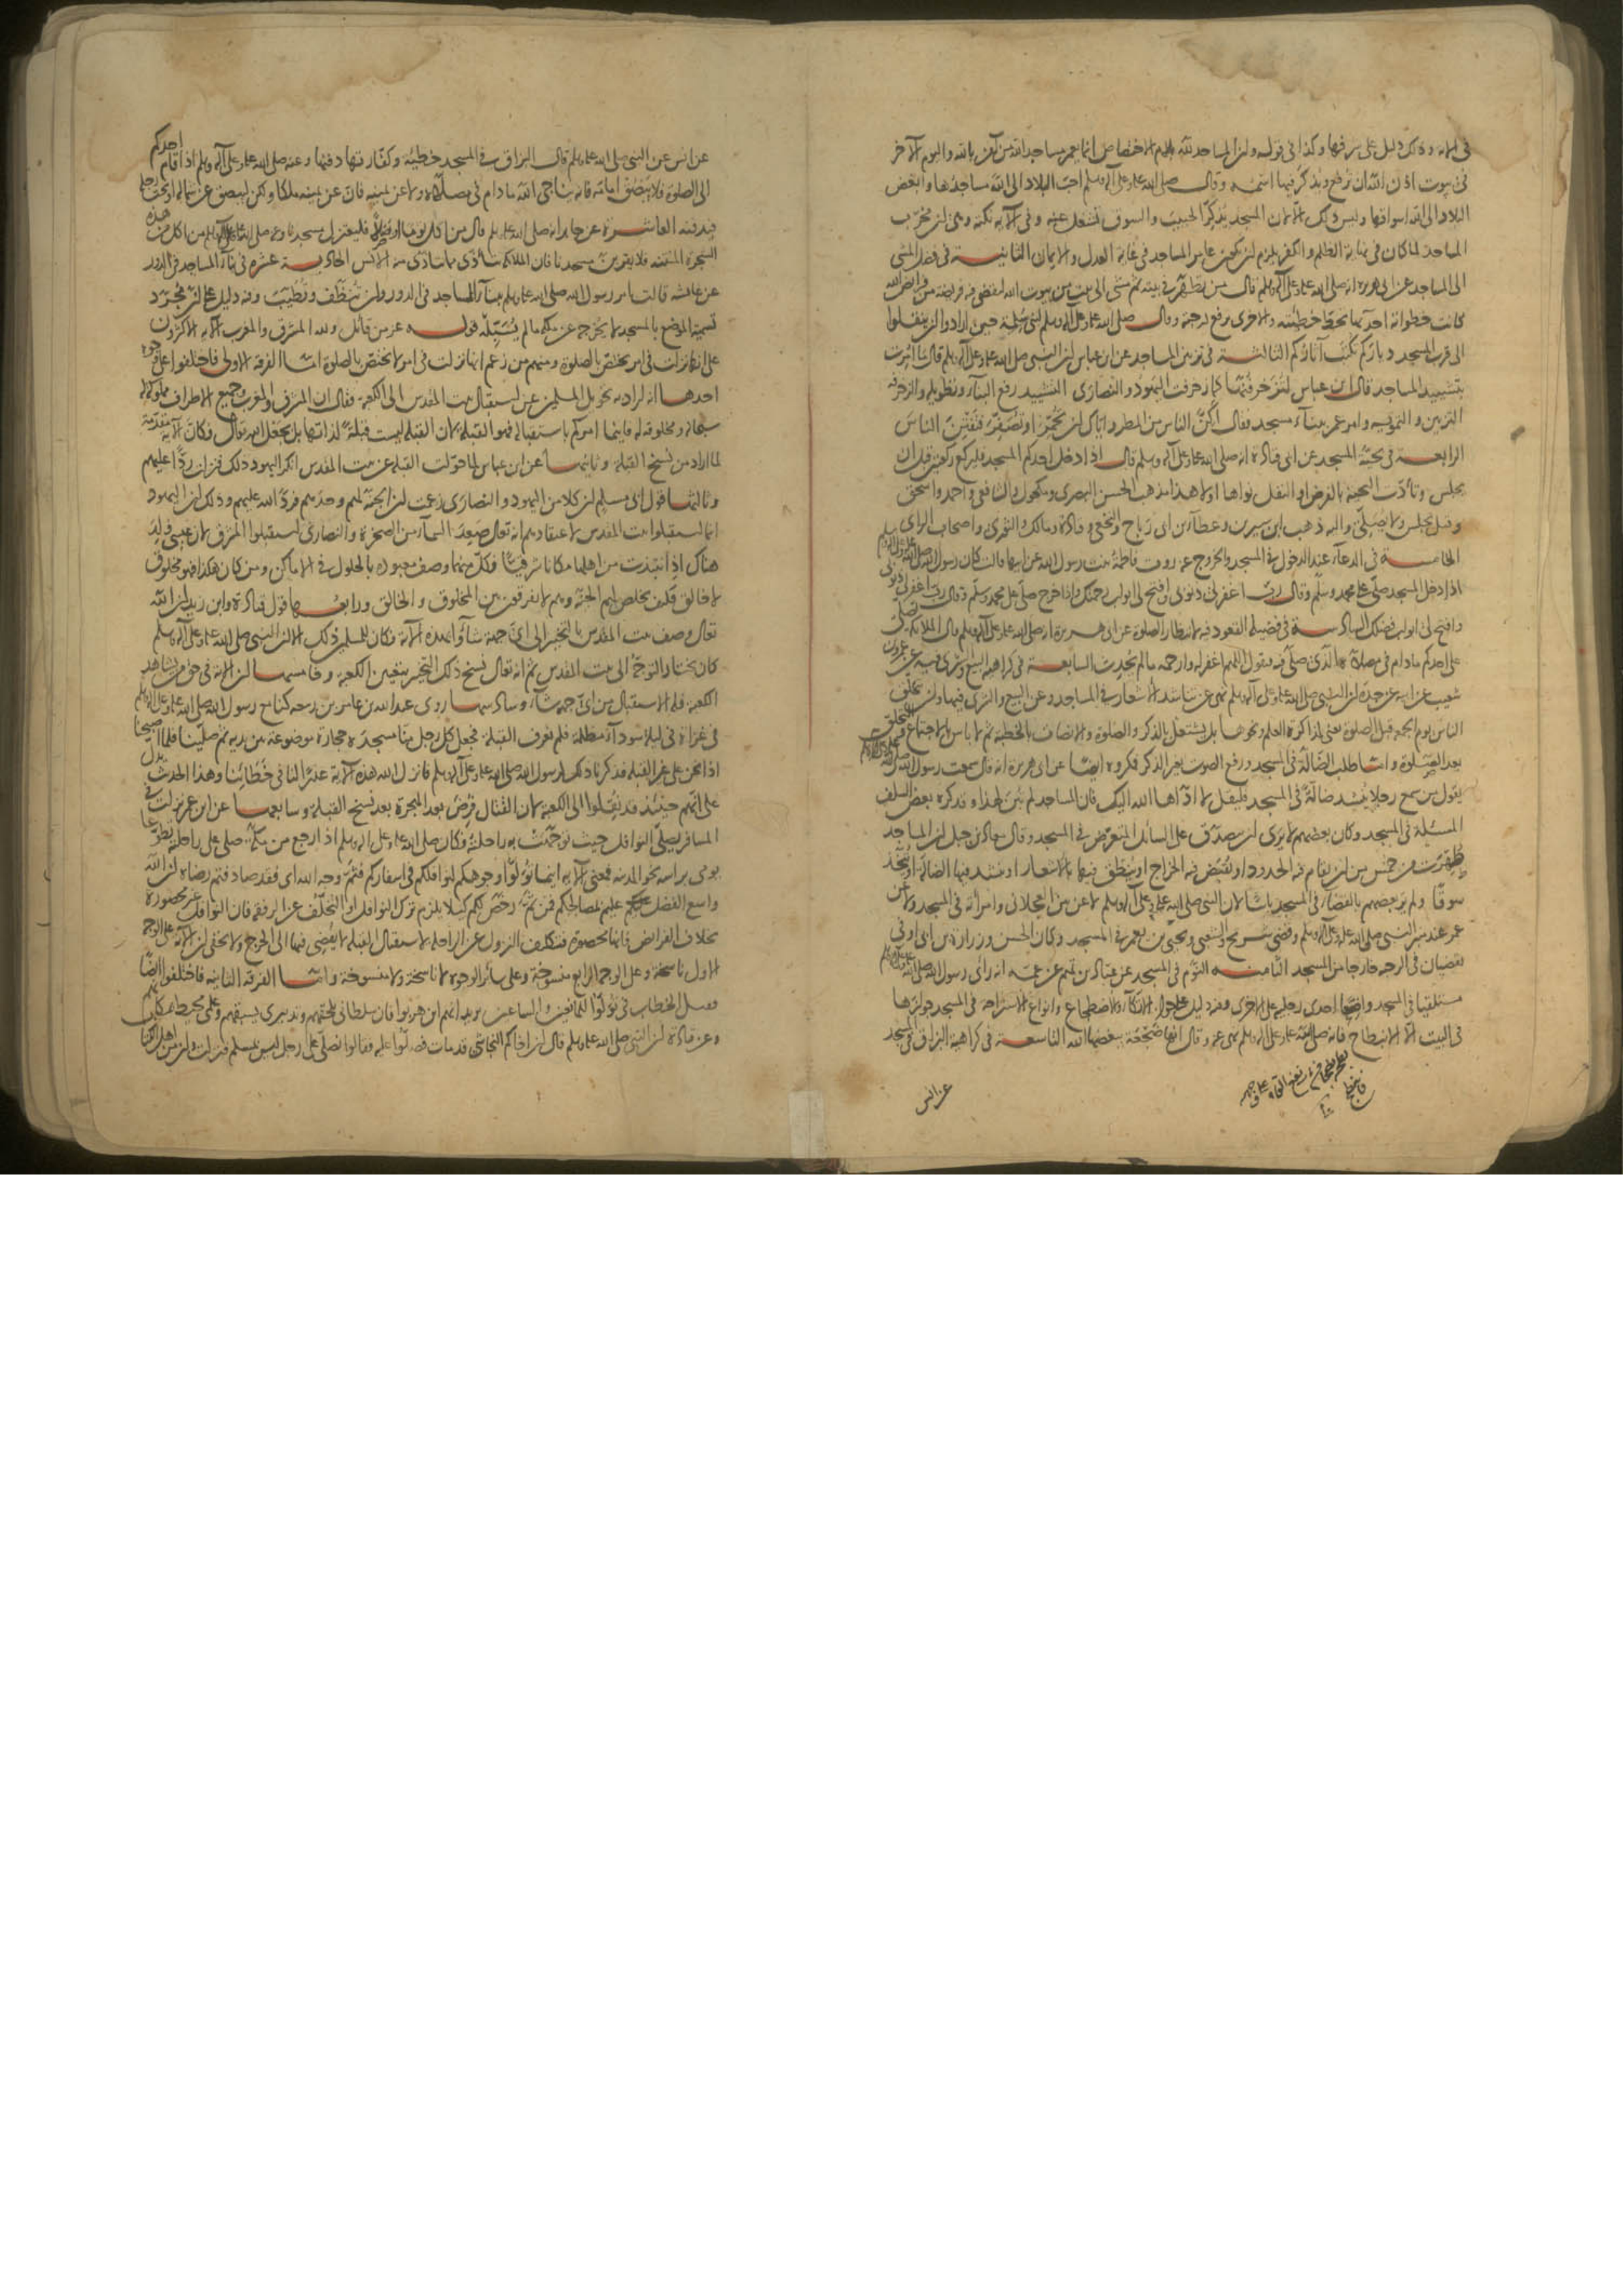 في الاية وذلك دليل على شرفها وكذا في قوله وان المساجد لله بلام الاختصاص انما يعمر مساجد الله من آمن بالله واليوم الآخر
في بيوت اذن الله ان ترفع ويذكر فيها اسمه وقال صلى الله عليه وعلى آله وسلم احبّ البلاد الى الله مساجدها وابغض
البلاد الى الله اسواقها وليس ذلك الا لان المسجد يذكر الحبيب والسوق تشغل عنه وفي الآية نكتة وهي ان مخرّب
المساجد لما كان في نهاية الظلم والكفر يلزم ان يكون عامر المساجد في غاية العدل والايمان الثانية في فضل المشي
الى المساجد عن ابي هريرة انه صلى الله عليه وعلى آله وسلم قال من تطهّر في بيته ثم مشى الى بيت من بيوت الله ليقضي فريضة من فرائض الله
كانت خطواته احديهما تحط خطيئته والاخرى ترفع درجة وقال صلى الله عليه وعلى آله وسلم لبني سلمة حين ارادوا ان ينتقلوا
الى قرب المسجد دياركم تكتب آثاركم الثالثة في تزيين المساجد عن ابن عباس ان النبي صلى الله عليه وعلى آله وسلم قال ما امرت
بتشييد المساجد قال ابن عباس لتزخرفنّها كما زخرفت اليهود والنصارى التشييد رفع البناء وتطويله والزخرفة
التزيين والتمويه وامر عمر ببناء مسجد فقال اكنّ الناس من المطر واياك ان تحمّر او تصفّر فتفتن الناس
الرابعة في تحية المسجد عن ابي قتادة انه صلى الله عليه وعلى آله وسلم قال اذا دخل احدكم المسجد فليركع ركعتين قبل ان
يجلس وتأدّت التحية بالفرض او النفل نواها او لا هذا مذهب الحسن البصري ومكحول والشافعي واحمد واسحق
وقيل يجلس ولا يصلّي واليه ذهب ابن سيرين وعطاء بن ابي رباح والنخعي وقتادة ومالك والثوري واصحاب الراي
الخامسة في الدعاء عند الدخول في المسجد والخروج عنه روت فاطمة بنت رسول الله عن ابيها قالت كان رسول الله صلى الله عليه وعلى آله وسلم
اذا دخل المسجد صلّى على محمد وسلّم وقال ربّ اغفر لي ذنوبي وافتح لي ابواب رحمتك واذا خرج صلّى على محمد وسلّم وقال رب اغفر لي ذنوبي
وافتح لي ابواب فضلك السادسة في فضيلة القعود فيه لانتظار الصلوة عن ابي هريرة انه صلى الله عليه وعلى آله وسلم قال الملائكة تصلي
على احدكم ما دام في مصلاه الذي صلّى فيه فتقول اللهم اغفر له وارحمه ما لم يحدث السابعة في كراهية البيع والشرى فيه عن عمرو بن
شعيب عن ابيه عن جده ان النبي صلى الله عليه وعلى آله وسلم نهى عن تناشد الاشعار في المساجد وعن البيع والشرى فيها وان يتحلق
الناس يوم الجمعة قبل الصلوة يعني لمذاكرة العلم ونحوها بل يشتغل بالذكر والصلوة والانصات بالخطبة ثم لا باس بالاجتماع والتحلق
بعد الصلوة واما طلب الضالّة في المسجد ورفع الصوت بغير الذكر فمكروه ايضا عن ابي هريرة انه قال سمعت رسول الله صلى الله عليه وعلى آله وسلم
يقول من سمع رجلا ينشد ضالّة في المسجد فليقل لا ادّاها الله اليك فان المساجد لم تبن لهذا وقد كره بعض السلف
المسئلة في المسجد وكان بعضهم لا يرى ان يصدّق على السائل المتعرض في المسجد وقال معاذ بن جبل ان المساجد
طهّرت من خمس من ان يقام فيه الحدود او يقبض فيه الخراج او ينطق فيها بالاشعار او ينشد فيها الضالة او يتّخذ
سوقا ولم ير بعضهم بالقضاء في المسجد باسا لان النبي صلى الله عليه وعلى آله وسلم لاعن بين العجلاني وامرأته في المسجد ولاعن
عمر عند منبر النبي صلى الله عليه وعلى آله وسلم وقضى شريح والشعبي ويحيى بن يعمر في المسجد وكان الحسن وزرارة بن ابي اوفى
يقضيان في الرحبة خارجا من المسجد الثامنة النوم في المسجد عن عبّاد بن تميم عن عمه انه رأى رسول الله صلى الله عليه وعلى آله وسلم
مستلقيا في المسجد واضعا احدى رجليه على الاخرى وفيه دليل على جواز الاتكاء والاضطجاع وانواع الاستراحة في المسجد جوازها
في البيت الا الانبطاح فانه صلى الله عليه وعلى آله وسلم نهى عنه وقال انها ضجعة يبغضها الله التاسعة في كراهية البزاق في المسجد
عن انس
عن انس عن النبي صلى الله عليه وسلم قال البزاق في المسجد خطيئة وكفّارتها دفنها وعنه صلى الله عليه وعلى آله وسلم اذا قام احدكم
الى الصلوة فلا يبصق امامه فانه يناجي الله ما دام في مصلّاه ولا عن يمينه فان عن يمينه ملكا ولكن ليبصق عن شماله او تحت رجله
فيدفنه العاشرة عن جابر انه صلى الله عليه وسلم قال من اكل ثوما او بصلا فليعتزل مسجدنا وانه صلى الله عليه وعلى آله وسلم من اكل من هذه
الشجرة المنتنة فلا يقربن مسجدنا فان الملائكة تتأذّى مما يتأذى منه الانس الحادية عشرة في بناء المساجد في الدور
عن عائشة قالت امر رسول الله صلى الله عليه وسلم ببناء المساجد في الدور وان تنظّف وتطيّب وفيه دليل على ان مجرّد
تسمية الموضع بالمسجد لا يخرجه عن ملكه ما لم يسبّله قوله عز من قائل ولله المشرق والمغرب الآية الاكثرون
على انها نزلت في امر يختص بالصلوة ومنهم من زعم انها نزلت في امر لا يختص بالصلوة امّا الفرقة الاولى فاختلفوا على وجوه
احدها انه اراد به تحويل المسلمين عن استقبال بيت المقدس الى الكعبة فقال ان المشرق والمغرب وجميع الاطراف مملوكة له
سبحانه ومخلوقة له فاينما امركم باستقباله فهو القبلة لان القبلة ليست قبلة لذاتها بل بجعل الله تعالى فكان الآية مقدمة
لما اراد من نسخ القبلة وثانيها عن ابن عباس لما حوّلت القبلة عن بيت المقدس انكر اليهود ذلك فنزلت ردّا عليهم
وثالثها قول ابي مسلم ان كلا من اليهود والنصارى زعمت ان الجنة لهم وحدهم فردّ الله عليهم وذلك ان اليهود
انما استقبلوا بيت المقدس لاعتقادهم انه تعالى صعد السماء من الصخرة والنصارى استقبلوا المشرق لان عيسى ولد
هناك اذ انتبذت من اهلها مكانا شرقيّا فكلّ منهما وصف معبوده بالحلول في الاماكن ومن كان هكذا فهو مخلوق
لا خالق فكيف يخلص لهم الجنة وهم لا يفرقون بين المخلوق والخالق ورابعها قول قتادة وابن زيد ان الله
تعالى وصف بيت المقدس بالتخيير الى ايّ جهة شاؤا بهذه الآية وكان للمسلمين ذلك الا ان النبي صلى الله عليه وعلى آله وسلم
كان يختار التوجّه الى بيت المقدس ثم انه تعالى نسخ ذلك التخيير بتعيين الكعبة وخامسها ان الآية في حق من يشاهد
الكعبة فله الاستقبال من ايّ جهة شاء وسادسها روى عبد الله بن عامر بن ربيعة كنا مع رسول الله صلى الله عليه وعلى آله وسلم
في غزاة في ليلة سوداء مظلمة فلم نعرف القبلة فجعل كل رجل منا مسجده حجارة موضوعة بين يديه ثم صلّينا فلما اصبحنا
اذا نحن على غير القبلة فذكرنا ذلك لرسول الله صلى الله عليه وعلى آله وسلم فانزل الله هذه الآية عذرا لنا في خطائنا وهذا الحديث يدل
على انهم حينئذ قد نقلوا الى الكعبة لان القتال فرض بعد الهجرة بعد نسخ القبلة وسابعها عن ابن عمر نزلت في
المسافر يصلي النوافل حيث توجّهت به راحلته وكان صلى الله عليه وعلى آله وسلم اذا رجع من مكة صلى على راحلته تطوعا
يومى براسه نحو المدينة فمعنى الآية اينما تولّوا وجوهكم لنوافلكم في اسفاركم فثمّ وجه الله اي فقد صادفتم رضاه ان الله
واسع الفضل عليم بمصالحكم فمن ثمّ رخّص لكم كيلا يلزم ترك النوافل او التخلّف عن الرفقة فان النوافل غير محصورة
بخلاف الفرائض فانها محصورة فتكليف النزول عن الراحلة لاستقبال القبلة لا يفضي فيها الى الحرج ولا يخفى ان الآية على الوجه
الاول ناسخة وعلى الوجه الرابع منسوخة وعلى سائر الوجوه لا ناسخة ولا منسوخة وامّا الفرقة الثانية فاختلفوا ايضًا
فقيل الخطاب في تولّوا للمانعين والساعين يريد انهم اين هربوا فان سلطاني يلحقهم وتدبيري يسبقهم وعلمي محيط بمكانهم
وعن قتادة ان النبي صلى الله عليه وسلم قال ان اخاكم النجاشي قد مات فصلّوا عليه فقالوا نصلّي على رجل ليس بمسلم فنزلت وان من اهل الكتاب